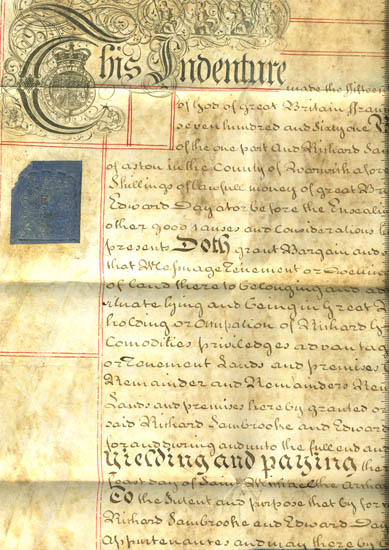 This Indenture
made the fifteen
of God of Great Britain ffran
seven hundred and Sixty one
of the one part And Richard
of aston in the County of Warwick afore
Shillings of lawfull money of great Br
Edward Day at or before the Ensealin
other good causes and Considerations
presents Doth grant Bargain and
that Messuage Tenement or
of land there to belonging and
ituate lying and being in Great
holding or Occupation of Richard
Comodities priviledges advantag
or Tenement Lands and premisses
Remainder and Remainders
Lands and premises hereby granted or
said Richard Sambrooke and Edward
for and during and unto the full end and
Yielding and paying the
feast day of Saint Michael the Archa
To the Intent and purpose that by for
Richard Sambrooke and Edward Day
Appurtenances and may there by